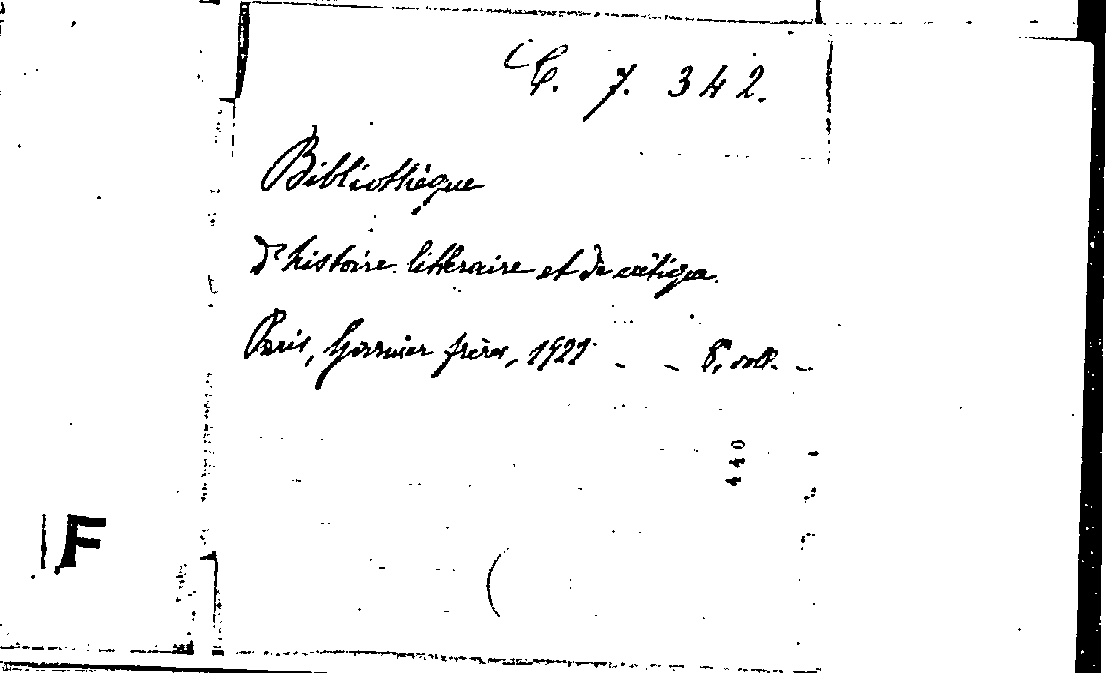 C. 7. 342.
Bibliothèque
d'histoire littéraire et de critique.
Paris, Garnier frères, 1921 - - 8, voll. -
440
F